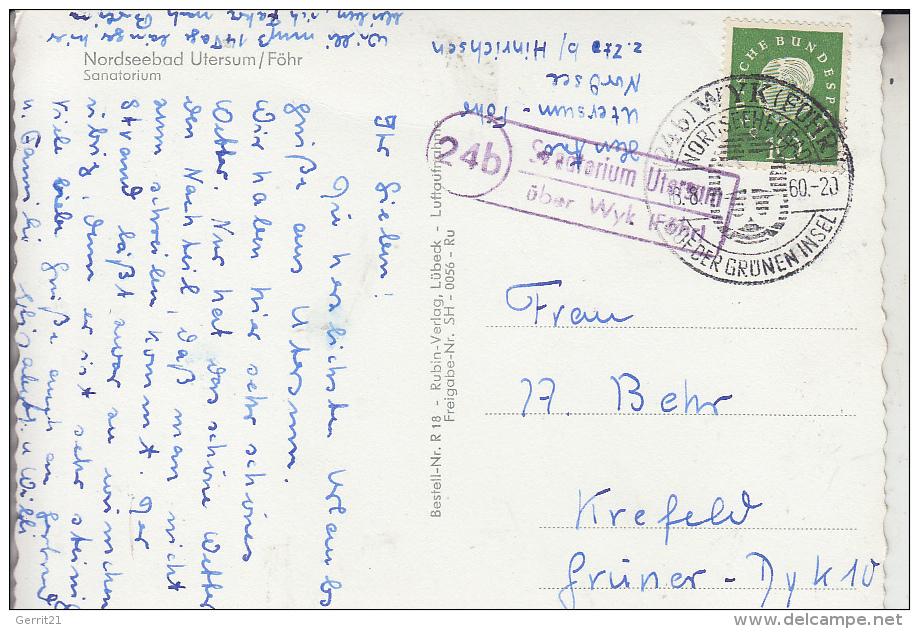 Nordseebad Utersum/Föhr
Sanatorium
Ihr Lieben!
Die herzlichsten Urlaubs
grüße aus Utersum.
Wir haben hier sehr schönes
Wetter. Nur hat das schöne Wetter
den Nachteil, daß man nicht
zum schreiben kommt. Der
Strand läßt zwar zu wünschen
übrig, denn er ist sehr steinig
Viele liebe Grüße auch an
u. Familie Elisabeth u Willi
Willi muß 14 Tage länger hier
bleiben, ich fahre nach
z. Zt. b/ Hinrichsen
Nordsee
Utersum - Föhr
Bestell-Nr. R 18 - Rubin-Verlag, Lübeck - Luftaufnahme
Freigabe-Nr. SH - 0056 - Ru
24b
Sanatorium Utersum
über Wyk (Föhr)
(24b) WYK (FÖHR)
NORDSEEHEILBAD
60.-20
AUF DER GRÜNEN INSEL
DEUTSCHE BUNDESPOST
Frau
A. Behr
Krefeld
Grüner-Dyk 10
Gerrit21